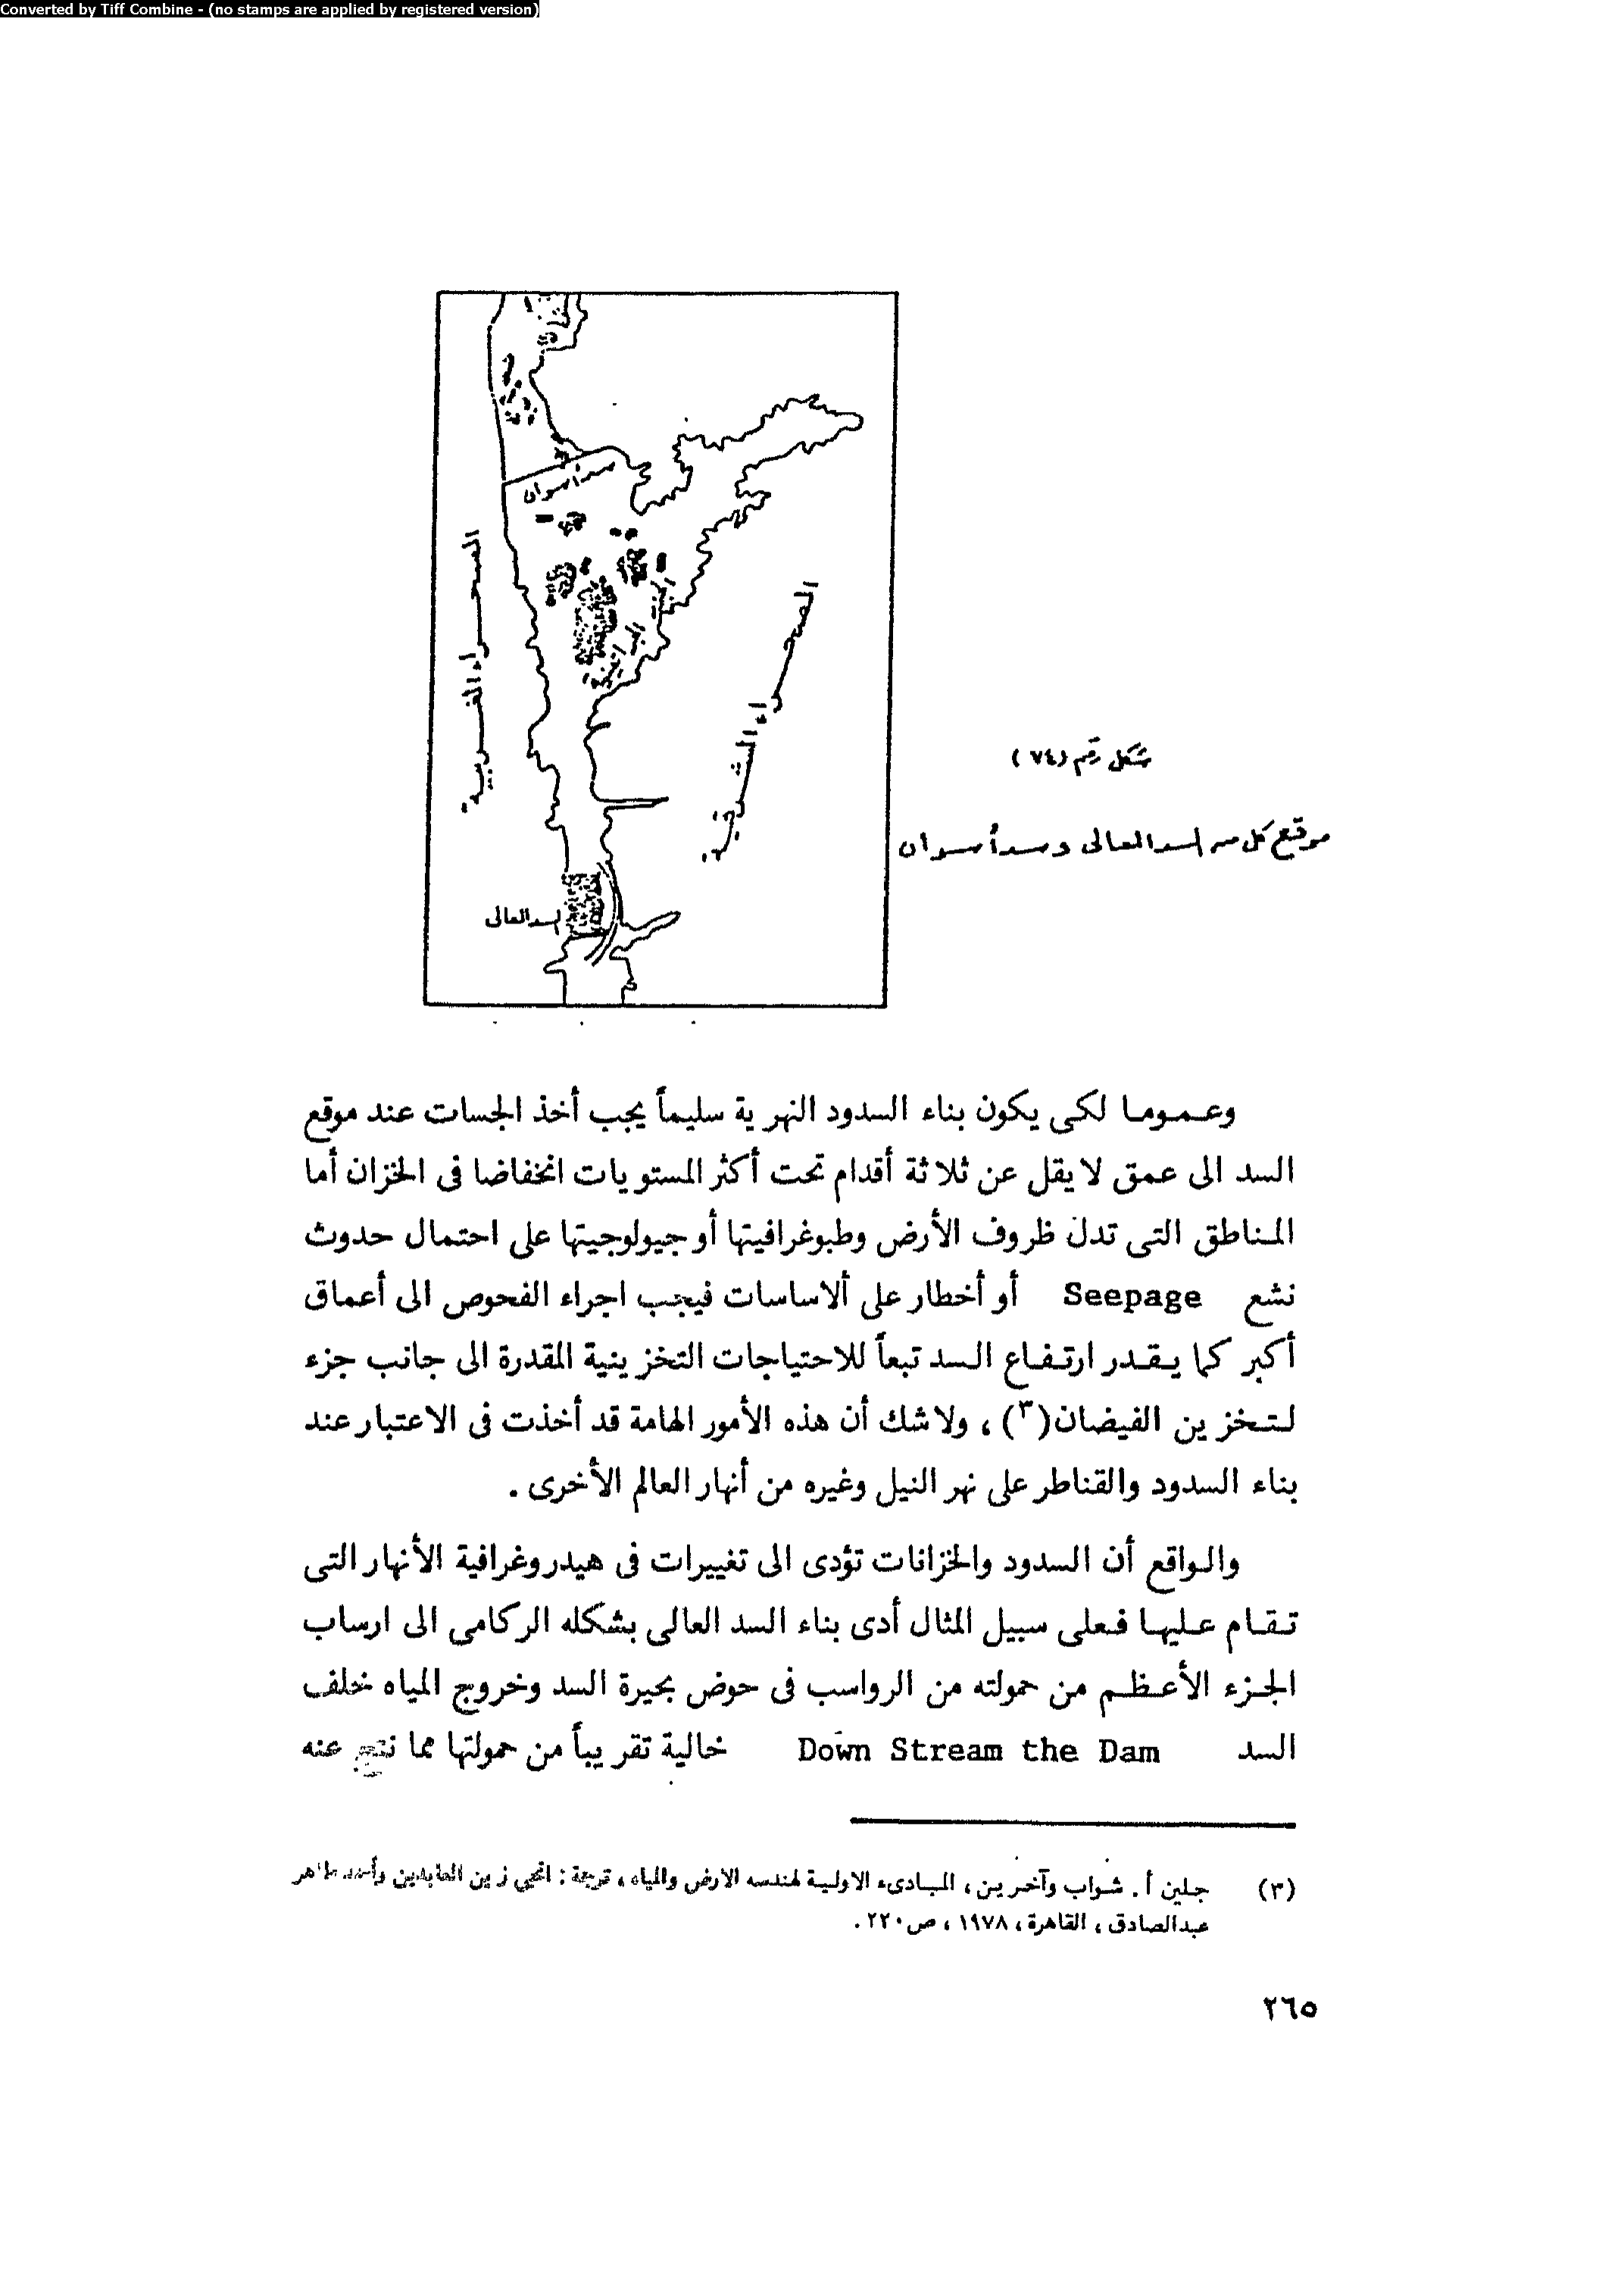 Converted by Tiff Combine - (no stamps are applied by registered version)
سد أسوان
الصحراء الغربية
الصحراء الشرقية
السد العالى
شكل رقم (٧٤)
موقع كل من السد العالى وسد أسوان
وعموما لكى يكون بناء السدود النهرية سليماً يجب أخذ الجسات عند موقع
السد الى عمق لا يقل عن ثلاثة أقدام تحت أكثر المستويات انخفاضا فى الخزان أما
المناطق التى تدل ظروف الأرض وطبوغرافيتها أو جيولوجيتها على احتمال حدوث
نشع Seepage أو أخطار على ألاساسات فيجب اجراء الفحوص الى أعماق
أكبر كما يقدر ارتفاع السد تبعاً للاحتياجات التخزينية المقدرة الى جانب جزء
لتخزين الفيضان(٣)، ولا شك أن هذه الأمور الهامة قد أخذت فى الاعتبار عند
بناء السدود والقناطر على نهر النيل وغيره من أنهار العالم الأخرى .
والواقع أن السدود والخزانات تؤدى الى تغييرات فى هيدروغرافية الأنهار التى
تقام عليها فعلى سبيل المثال أدى بناء السد العالى بشكله الركامى الى ارساب
الجزء الأعظم من حمولته من الرواسب فى حوض بحيرة السد وخروج المياه خلف
السد Down Stream the Dam خالية تقريباً من حمولتها مما نتج عنه
(٣) جلين أ. شواب وآخرين، المبادىء الاولية لهندسه الارض والمياه، ترجمة : زين العابدين وأحمد طاهر
عبدالصادق، القاهرة، ١٩٧٨، ص٢٢٠.
٢٦٥